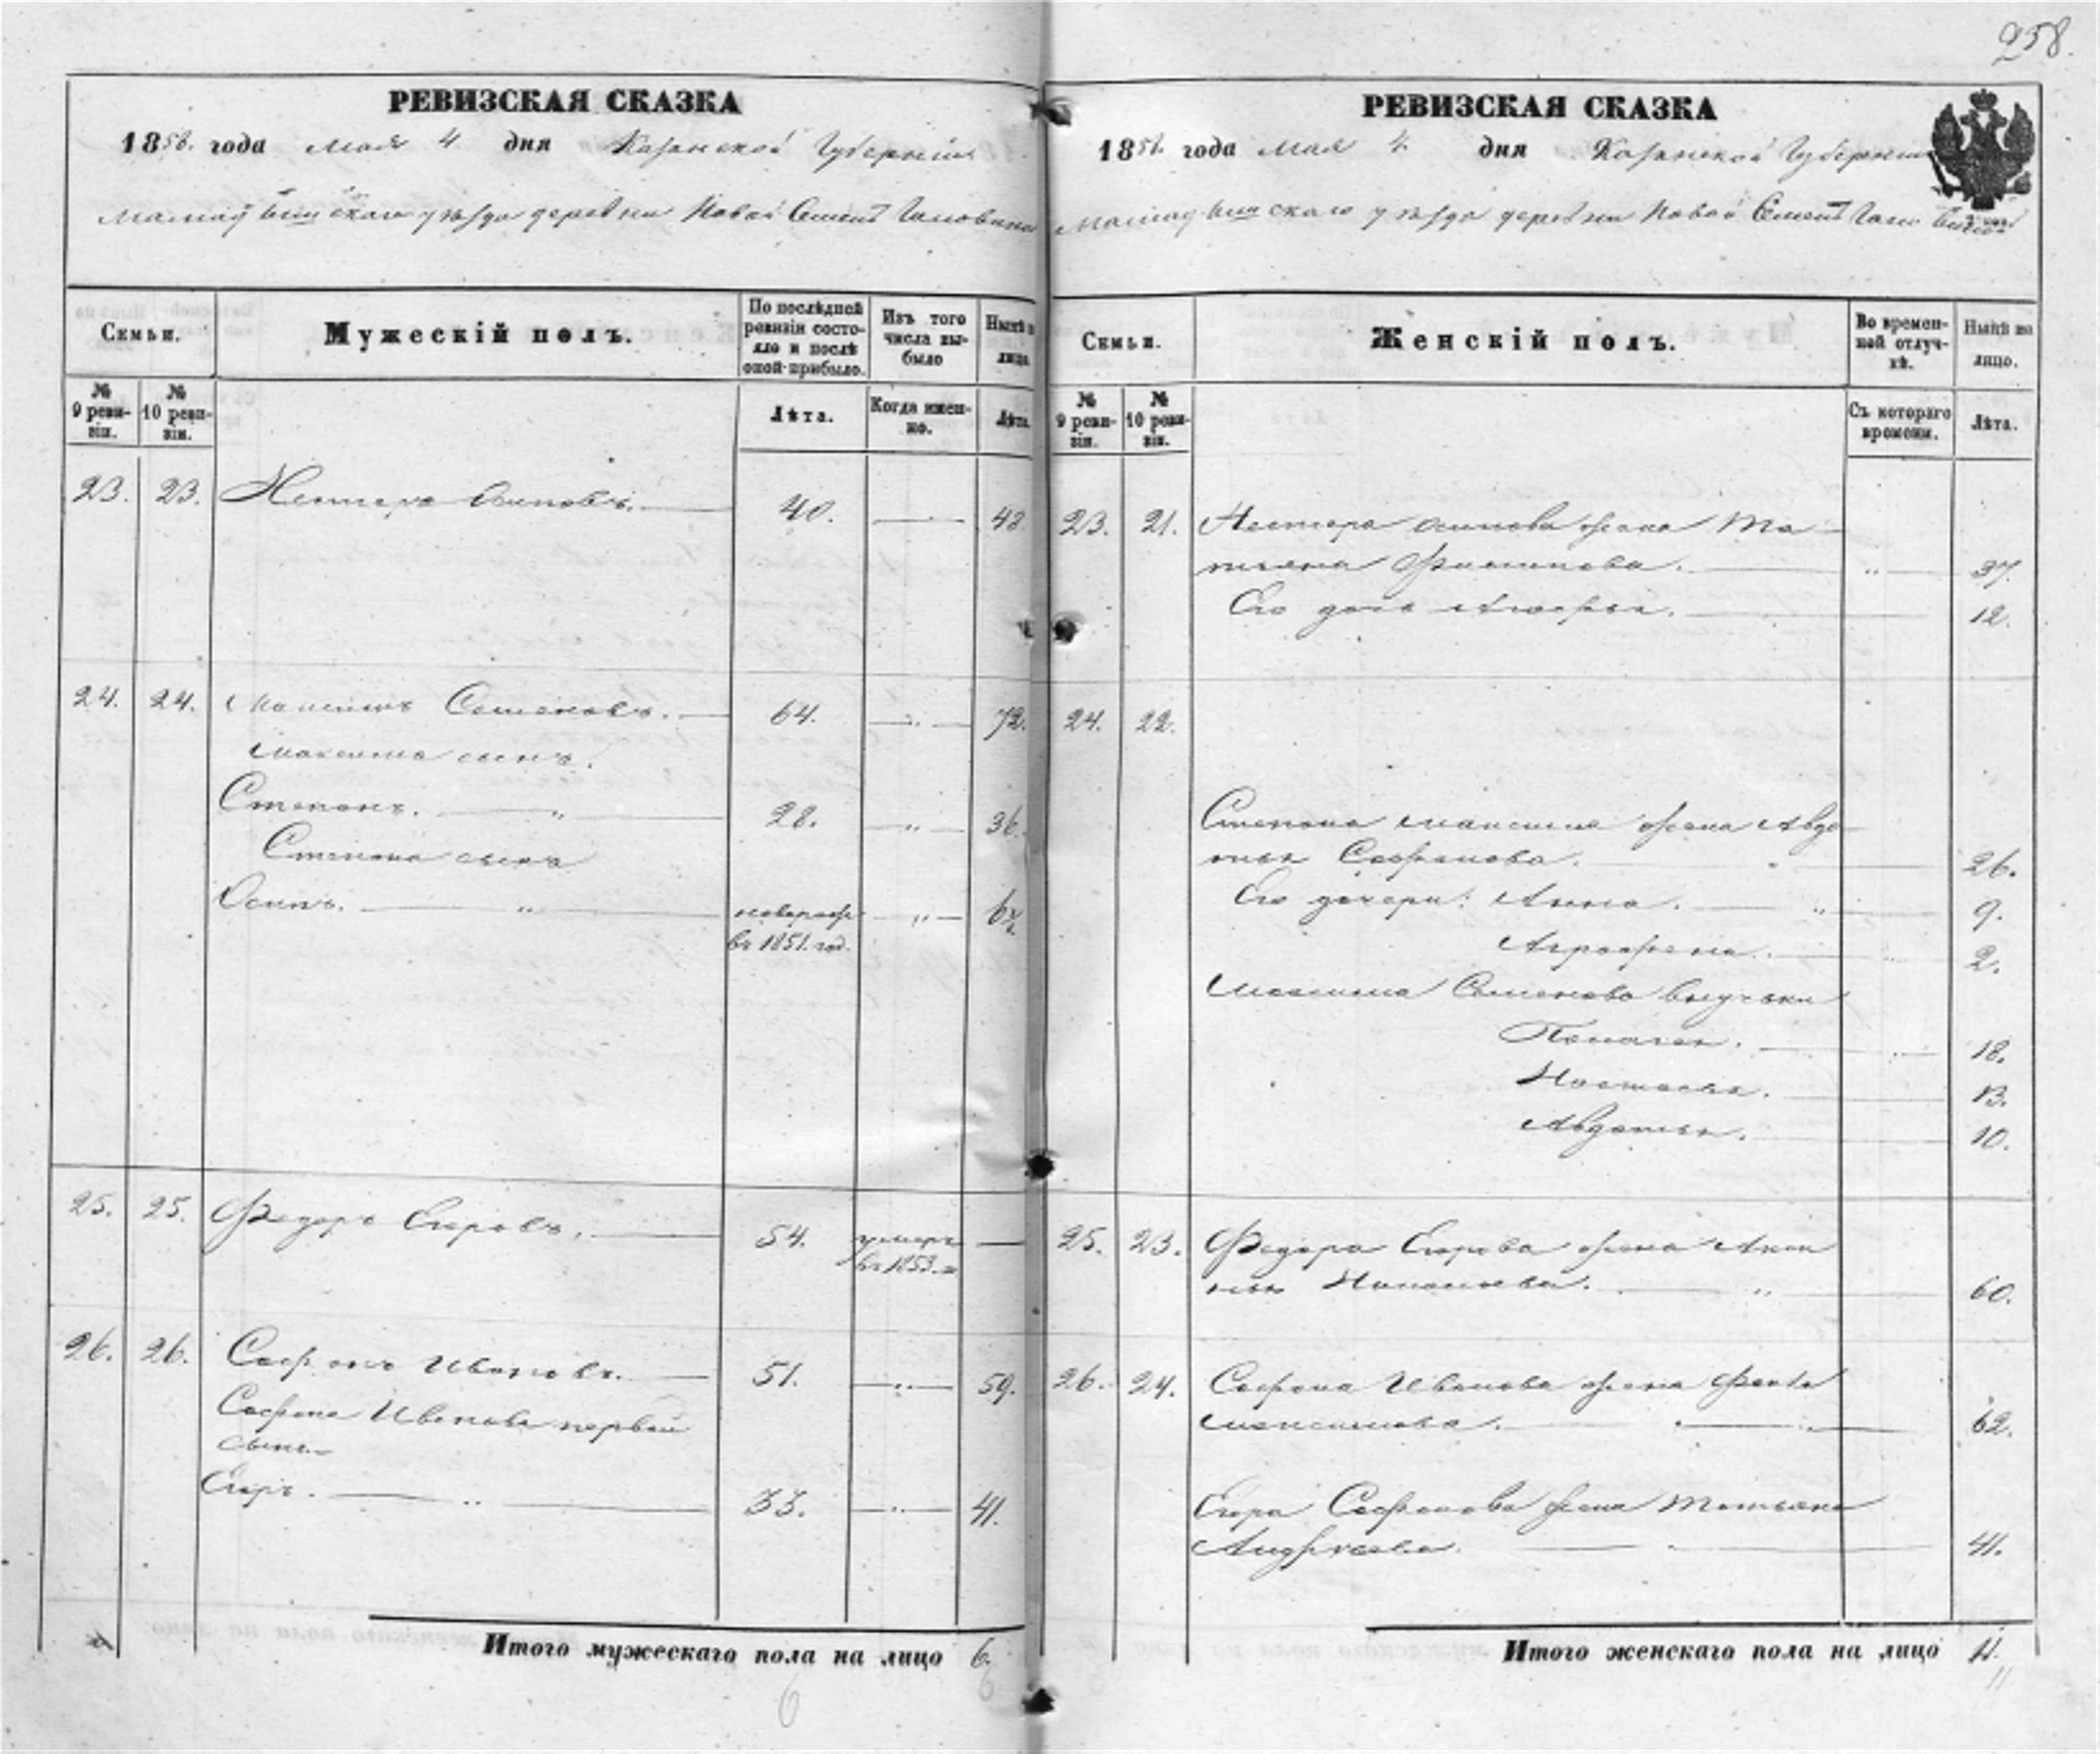 258.
РЕВИЗСКАЯ СКАЗКА
1858. года мая 4 дня Казанской Губернiи
уѣзда деревни Новой
Семьи.
Мужескiй полъ.
По послѣдней ревизiи состояло и послѣ оной прибыло.
Изъ того числа выбыло
Нынѣ на лицо.
№ 9 ревизiи.
№ 10 ревизiи.
Лѣта.
Когда именно.
Лѣта.
23. 23. Нестеръ Осиповъ. 40. 48.
24. 24. Максимъ Семеновъ. 64. „ 72.
Максима сынъ.
Степанъ. „ 28. „ 36.
Степана сынъ
Осипъ. „ новорож „ 6
въ 1851. год.
25. 25. Федоръ Егоровъ. 54. умеръ
въ 1853.
26. 26. Софронъ Ивановъ. 51. „ 59.
Софрона Иванова первой
сынъ
Егоръ. „ 33. „ 41.
Итого мужескаго пола на лицо 6.
6
6
РЕВИЗСКАЯ СКАЗКА
1858. года мая 4. дня Казанской Губернiи
уѣзда деревни Новой
Семьи.
Женскiй полъ.
Во временной отлучкѣ.
Нынѣ на лицо.
№ 9 ревизiи.
№ 10 ревизiи.
Съ котораго времени.
Лѣта.
23. 21. Нестера Осипова жена Та
тьяна Филипова. „ 37.
Его дочь 12.
24. 22.
Степана Максима жена Авдо
тья Софронова. „ 26.
Его дочери: Анна. „ 9.
Аграфена. „ 2.
Максима Семенова внучьки
Пелагея. „ 18.
Настасья. 13.
Авдотья. 10.
25. 23. Федора Егорова жена Аксинья
„ 60.
26. 24. Софрона Иванова жена
Максимова. „ 62.
Егора Софронова жена Татьяна
Андреева. 41.
Итого женскаго пола на лицо 11.
11